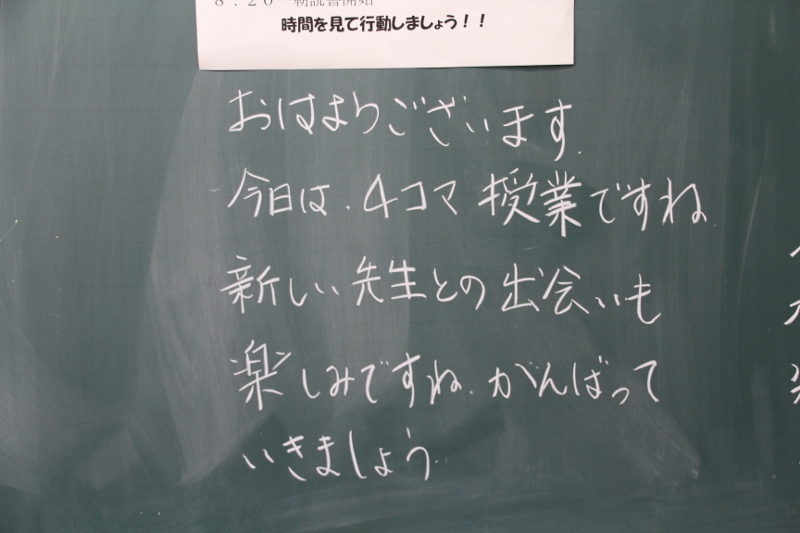 8：20 朝読書開始
時間を見て行動しましょう！！
おはようございます.
今日は、4コマ授業ですね.
新しい先生との出会いも
楽しみですね.がんばって
いきましょう.